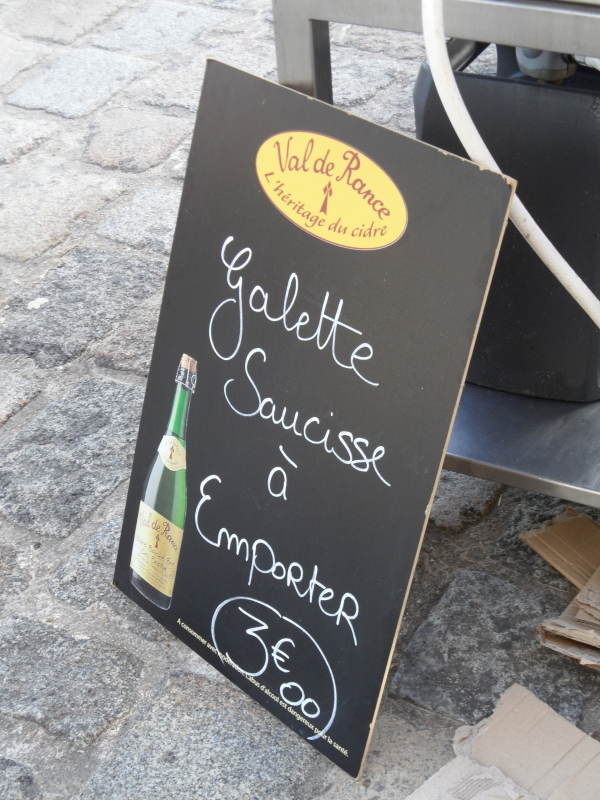 Val de Rance
L'héritage du cidre
Galette
Saucisse
à
Emporter
3€00
Val de Rance
A consommer avec modération. L'abus d'alcool est dangereux pour la santé.